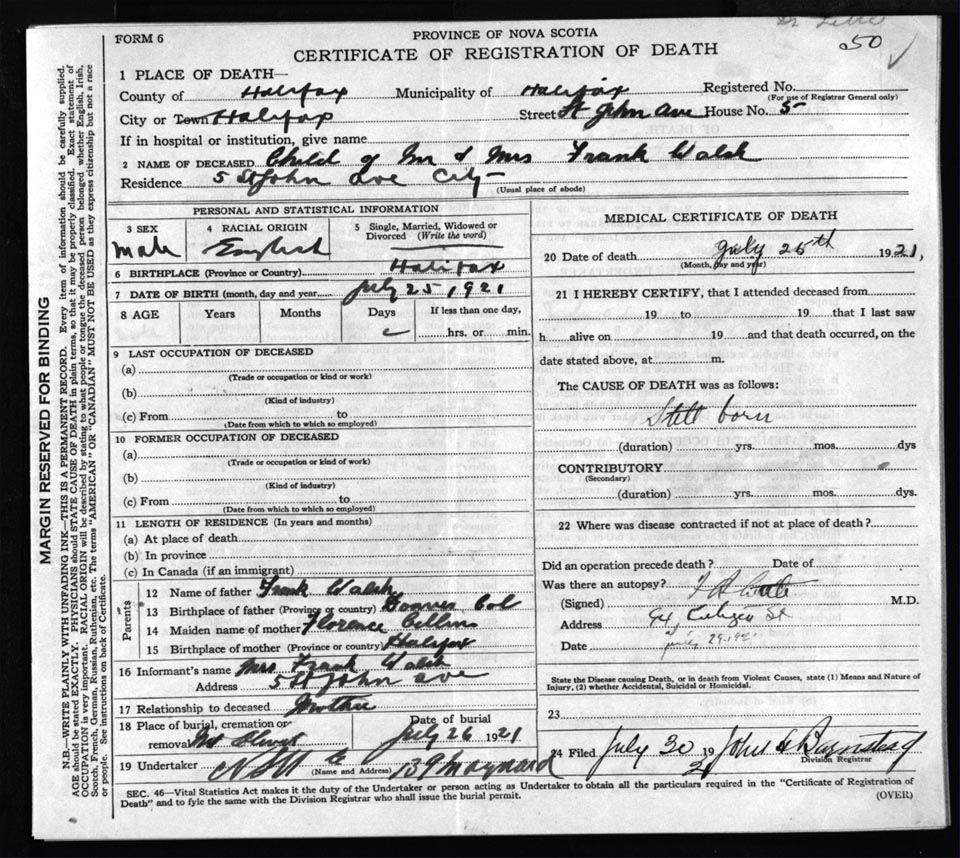 50
FORM 6
PROVINCE OF NOVA SCOTIA
CERTIFICATE OF REGISTRATION OF DEATH
1 PLACE OF DEATH—
County of Halifax Municipality of Halifax Registered No.
(For use of Registrar General only)
City or Town Halifax Street St John Ave House No. 5
If in hospital or institution, give name
2 NAME OF DECEASED Child of Mr & Mrs Frank Walsh
Residence 5 St John Ave City
(Usual place of abode)
PERSONAL AND STATISTICAL INFORMATION
3 SEX 4 RACIAL ORIGIN 5 Single, Married, Widowed or Divorced (Write the word)
Male English
6 BIRTHPLACE (Province or Country) Halifax
7 DATE OF BIRTH (month, day and year) July 25, 1921
8 AGE Years Months Days If less than one day,
hrs. or min.
9 LAST OCCUPATION OF DECEASED
(a)
(Trade or occupation or kind or work)
(b)
(Kind of industry)
(c) From to
(Date from which to which so employed)
10 FORMER OCCUPATION OF DECEASED
(a)
(Trade or occupation or kind of work)
(b)
(Kind of industry)
(c) From to
(Date from which to which so employed)
11 LENGTH OF RESIDENCE (In years and months)
(a) At place of death
(b) In province
(c) In Canada (if an immigrant)
Parents
12 Name of father Frank Walsh
13 Birthplace of father (Province or country) Col
14 Maiden name of mother Florence
15 Birthplace of mother (Province or country) Halifax
16 Informant's name Mrs Frank Walsh
Address 5 St John Ave
17 Relationship to deceased Mother
18 Place of burial, cremation or removal Mt Olivet
Date of burial
July 26 1921
19 Undertaker Maynard
(Name and Address)
MEDICAL CERTIFICATE OF DEATH
20 Date of death July 25th 1921,
(Month, day and year)
21 I HEREBY CERTIFY, that I attended deceased from
19 to 19 that I last saw
h alive on 19 and that death occurred, on the
date stated above, at m.
The CAUSE OF DEATH was as follows:
Still born
(duration) yrs. mos. dys
CONTRIBUTORY
(Secondary)
(duration) yrs. mos. dys.
22 Where was disease contracted if not at place of death?
Did an operation precede death? Date of
Was there an autopsy?
(Signed) M.D.
Address St
Date
State the Disease causing Death, or in death from Violent Causes, state (1) Means and Nature of
Injury, (2) whether Accidental, Suicidal or Homicidal.
23
24 Filed July 30 1921 John Barnstead
Division Registrar
SEC. 46—Vital Statistics Act makes it the duty of the Undertaker or person acting as Undertaker to obtain all the particulars required in the "Certificate of Registration of
Death" and to fyle the same with the Division Registrar who shall issue the burial permit.
(OVER)
MARGIN RESERVED FOR BINDING
N.B.—WRITE PLAINLY WITH UNFADING INK—THIS IS A PERMANENT RECORD. Every item of information should be carefully supplied.
AGE should be stated EXACTLY. PHYSICIANS should STATE CAUSE OF DEATH in plain terms, so that it may be properly classified. Exact statement of
OCCUPATION is very important. RACIAL ORIGIN will be described by stating to what people or tongue the deceased person belonged whether English, Irish,
Scotch, French, German, Russian, Ruthenian, etc. The terms "AMERICAN" OR "CANADIAN" MUST NOT BE USED as they express citizenship but not a race
or people. See instructions on back of Certificate.